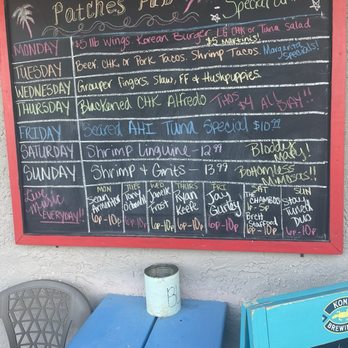 Patches Pub
Special
MONDAY $ 1lb Wings, Korean Burger, CHK or Tuna Salad
$5 Martinis!
TUESDAY Beef, CHK, or Pork Tacos. Shrimp Tacos. Margarita Specials!
WEDNESDAY Grouper Fingers, Slaw, FF & Hushpuppies.
THURSDAY Blackened CHK Alfredo Taps $4 All DAY!!
FRIDAY Seared AHI Tuna Special
SATURDAY Shrimp Linguine - 12.99 Bloody Mary!
SUNDAY Shrimp & Grits - 13.99 Bottomless Mimosas!!
Live Music EVERYDAY!!
MON TUES WED THURS FRI SAT SUN
Sean
6p-10p
Frost
6p-10p
Ryan Keefe
6p-10p
Jay
6p-10p
THE
Brett
6p-10p
Stay Tuned Duo
6p-10p
KONA
BREWING